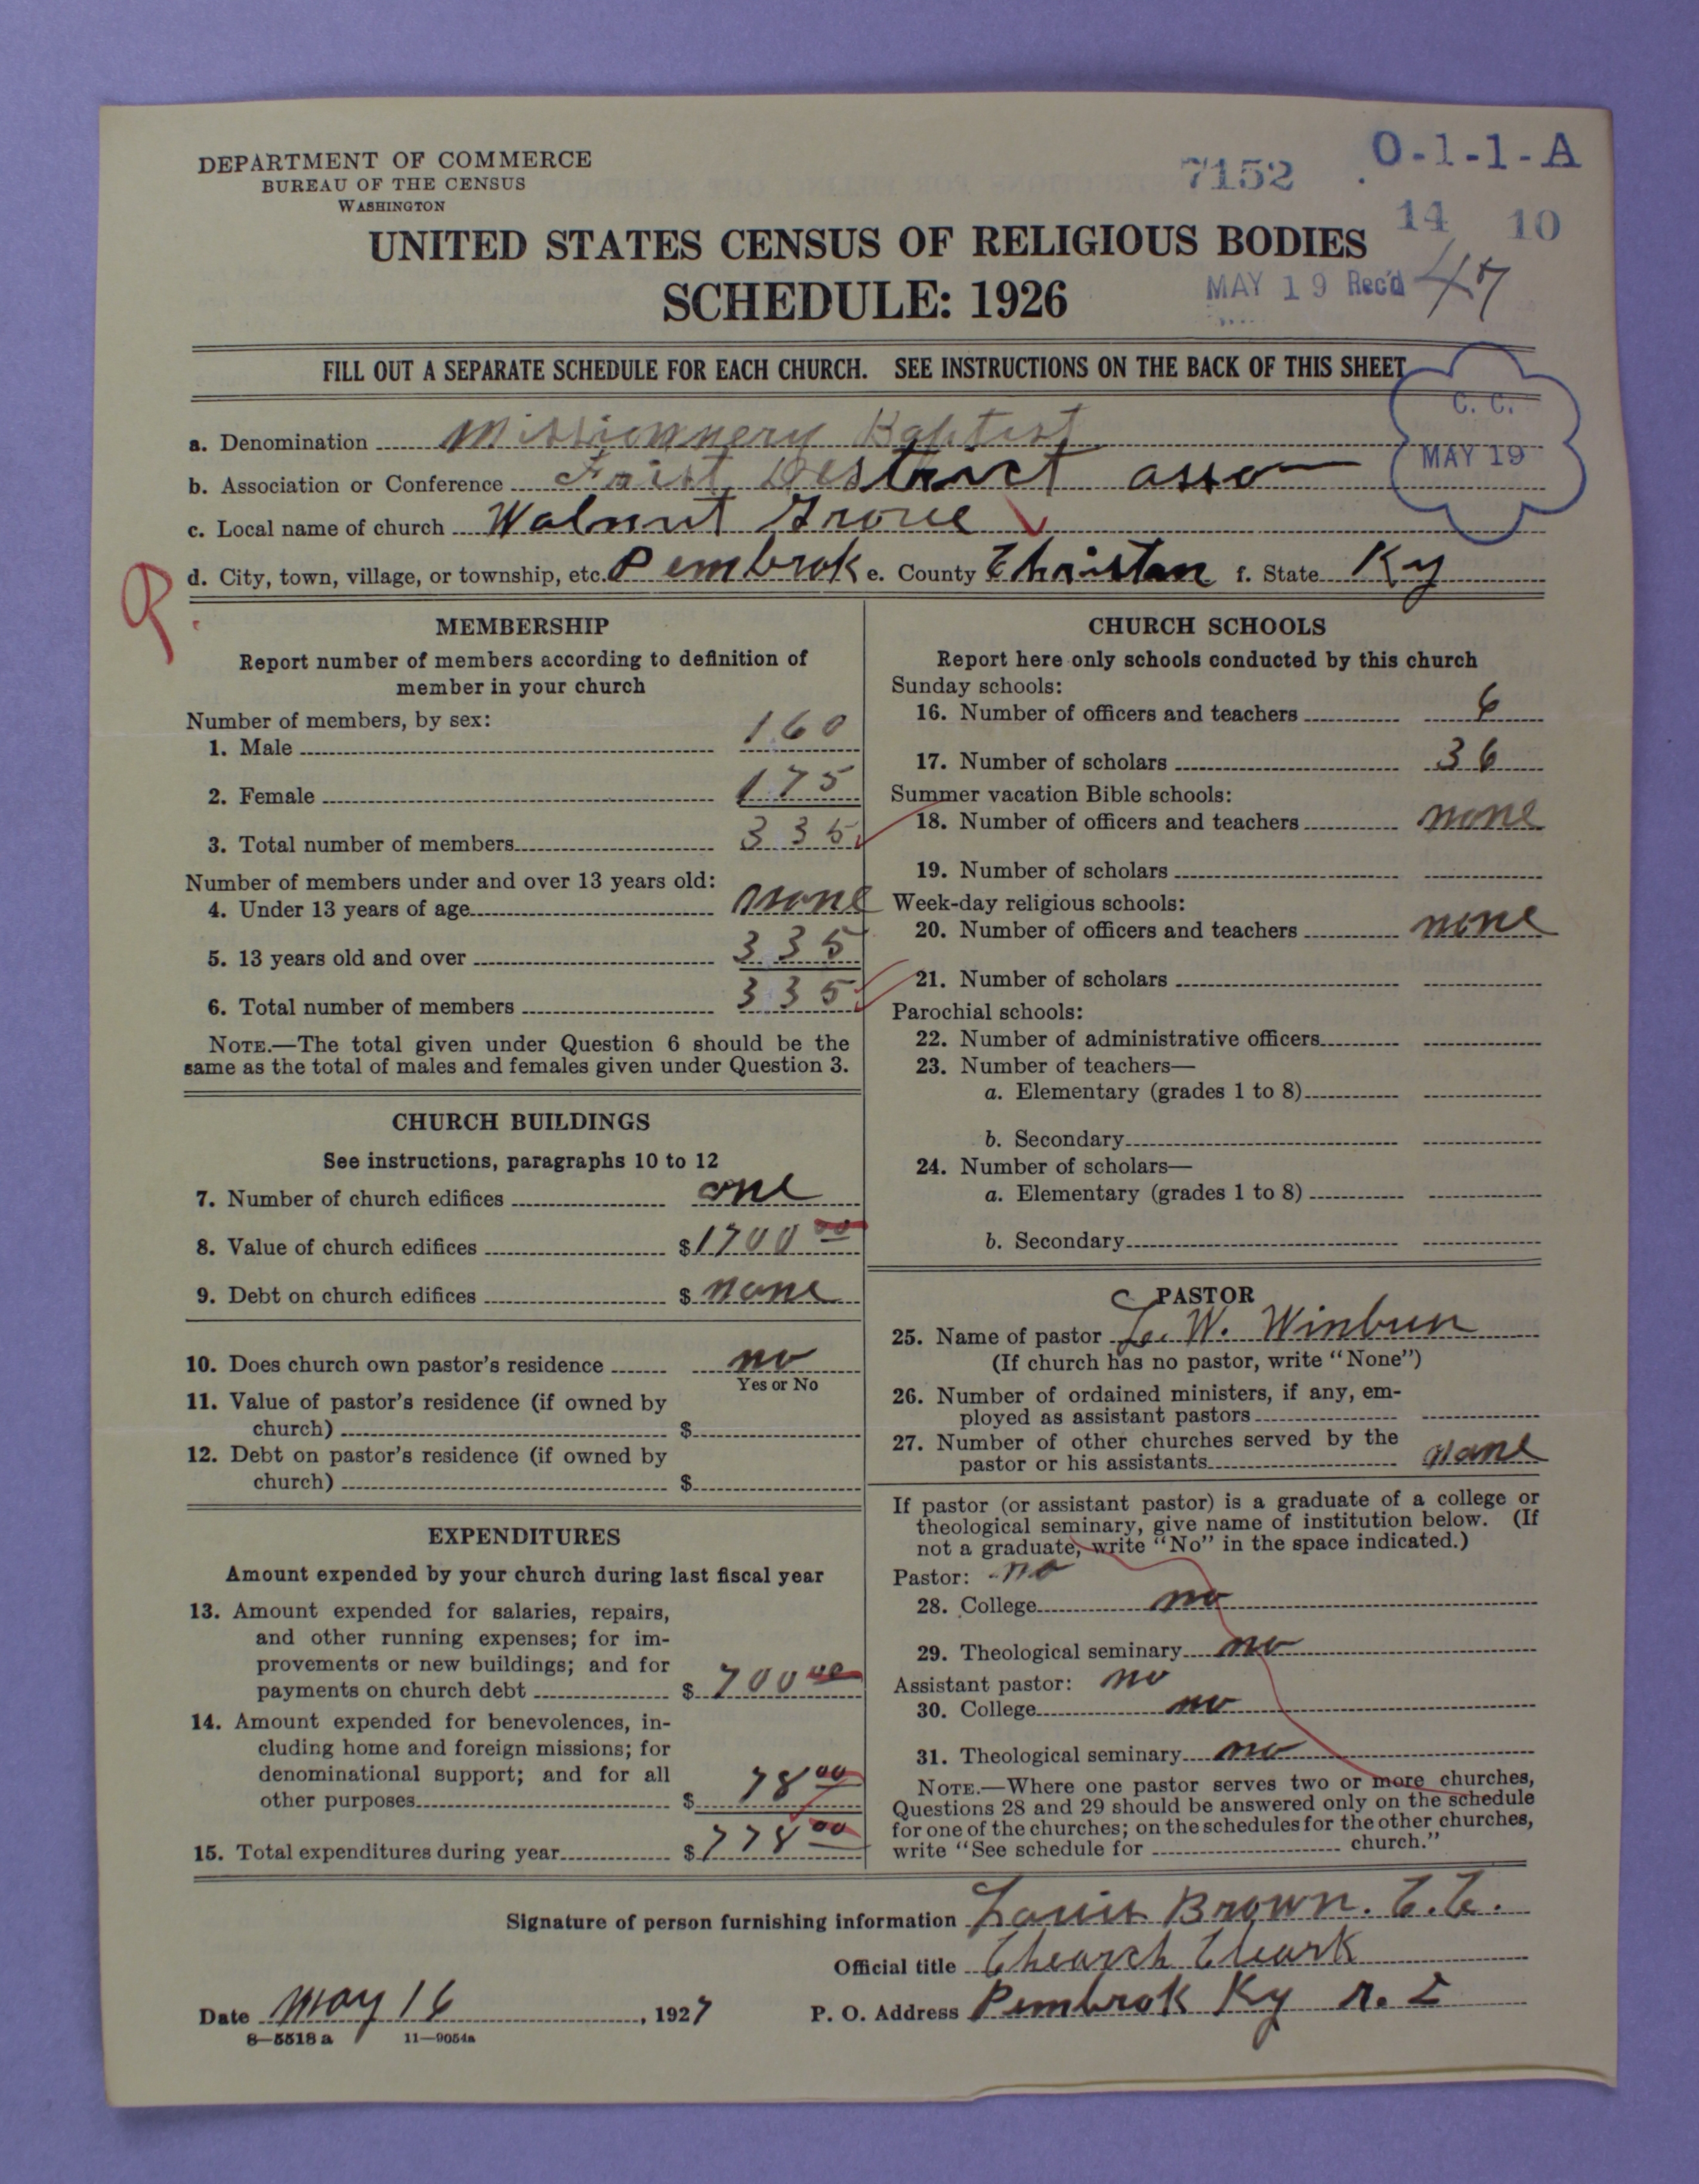 DEPARTMENT OF COMMERCE
BUREAU OF THE CENSUS
WASHINGTON
7152 O-1-1-A
14 10
UNITED STATES CENSUS OF RELIGIOUS BODIES
SCHEDULE: 1926
MAY 19 Rec'd 47
FILL OUT A SEPARATE SCHEDULE FOR EACH CHURCH. SEE INSTRUCTIONS ON THE BACK OF THIS SHEET
C. C.
MAY 19
a. Denomination Missionnery Baptist
b. Association or Conference Frist District asso
c. Local name of church Walnut Grove
d. City, town, village, or township, etc. Pembrok e. County Christan f. State Ky
MEMBERSHIP
Report number of members according to definition of
member in your church
Number of members, by sex:
1. Male 160
2. Female 175
3. Total number of members 335
Number of members under and over 13 years old:
4. Under 13 years of age none
5. 13 years old and over 335
6. Total number of members 335
NOTE.—The total given under Question 6 should be the
same as the total of males and females given under Question 3.
CHURCH BUILDINGS
See instructions, paragraphs 10 to 12
7. Number of church edifices one
8. Value of church edifices $1700 00
9. Debt on church edifices $ none
10. Does church own pastor's residence no
Yes or No
11. Value of pastor's residence (if owned by
church) $
12. Debt on pastor's residence (if owned by
church) $
EXPENDITURES
Amount expended by your church during last fiscal year
13. Amount expended for salaries, repairs,
and other running expenses; for im-
provements or new buildings; and for
payments on church debt $ 700 00
14. Amount expended for benevolences, in-
cluding home and foreign missions; for
denominational support; and for all
other purposes $ 78 00
15. Total expenditures during year $ 778 00
CHURCH SCHOOLS
Report here only schools conducted by this church
Sunday schools:
16. Number of officers and teachers 6
17. Number of scholars 36
Summer vacation Bible schools:
18. Number of officers and teachers none
19. Number of scholars
Week-day religious schools:
20. Number of officers and teachers none
21. Number of scholars
Parochial schools:
22. Number of administrative officers
23. Number of teachers—
a. Elementary (grades 1 to 8)
b. Secondary
24. Number of scholars—
a. Elementary (grades 1 to 8)
b. Secondary
PASTOR
25. Name of pastor L. W. Winburn
(If church has no pastor, write "None")
26. Number of ordained ministers, if any, em-
ployed as assistant pastors
27. Number of other churches served by the
pastor or his assistants none
If pastor (or assistant pastor) is a graduate of a college or
theological seminary, give name of institution below. (If
not a graduate, write "No" in the space indicated.)
Pastor: no
28. College no
29. Theological seminary no
Assistant pastor: no
30. College no
31. Theological seminary no
NOTE.—Where one pastor serves two or more churches,
Questions 28 and 29 should be answered only on the schedule
for one of the churches; on the schedules for the other churches,
write "See schedule for church."
Signature of person furnishing information Louis Brown. C.C.
Official title Chearch Cleark
Date May 16, 1927 P. O. Address Pembrok Ky R. 2
8—5518 a 11—9054a